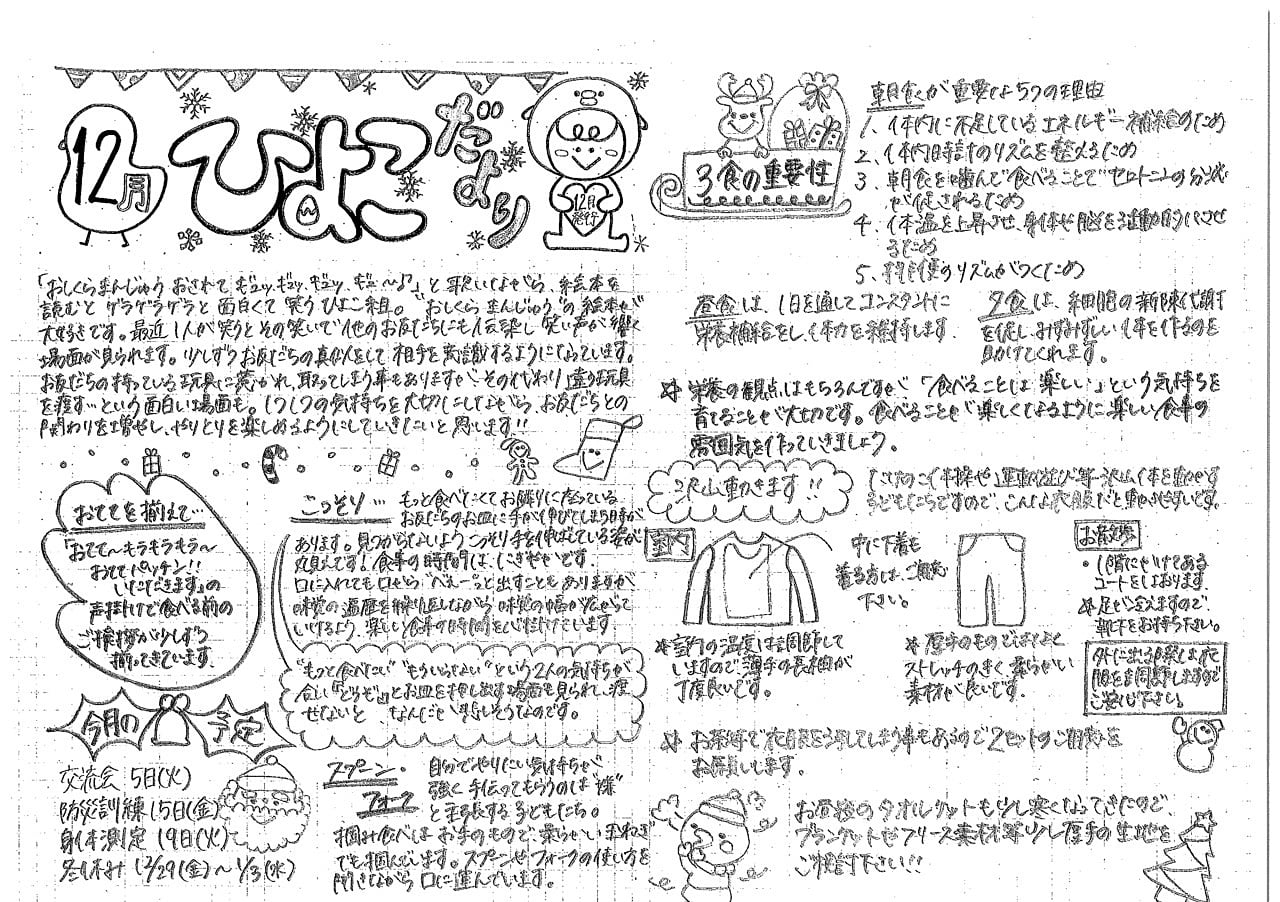 12月
ひよこだより
12月発行
「おしくらまんじゅう おされて ギュッ、ギュッ、ギュッ、ギュ〜♪」と歌いながら、絵本を
読むと ゲラゲラゲラと 面白くて 笑う ひよこ組。"おしくら まんじゅう"の 絵本が
大好きです。最近 1人が笑うと その笑いで 他のお友だちにも伝染し 笑い声が響く
場面が見られます。少しずつお友だちの真似をして 相手を意識するようになっています。
お友だちの持っている玩具に惹かれ、取ってしまう事もありますが、その代わり 違う玩具
を渡す…という面白い場面も。1つ1つの気持ちを大切にしながら、お友だちとの
関わりを増やし、やりとりを楽しめるようにしていきたいと思います!!
おててを揃えて…
「おてて〜キラキラキラ〜
おててパッチン!!
いただきます」の
声掛けで食べる前の
ご挨拶が少しずつ
揃ってきています。
こっそり…
もっと食べたくてお隣りに座っている
お友だちのお皿に手が伸びてしまう時が
あります。見つからないよう こっそり手を伸ばしている姿が
丸見えです!食事の時間は、にぎやかです。
口に入れても口から"べぇー"っと出すこともありますが
味覚の を繰り返しながら 味覚の幅が広がって
いけるよう、楽しい食事の時間を心掛けています。
"もっと食べたい" "もういらない"という2人の気持ちが
合い「どうぞ」とお皿を押し出す場面も見られて、渡
せないと なんだか 悲しそうなのです。
今月の予定
交流会 5日(火)
防災訓練 15日(金)
身体測定 19日(火)
冬休み 12/29(金)〜1/3(水)
スプーン・フォーク
自分でやりたい気持ちが
強く 手伝ってもらうのは"嫌"
と主張する子どもたち。
掴み食べは お手のもので、柔らかい 玉ねぎ
でも掴んでいます。スプーンや フォークの使い方を
聞きながら 口に運んでいます。
3食の重要性
朝食が重要な5つの理由
1、体内に不足しているエネルギー補給のため
2、体内時計のリズムを整えるため
3、朝食を噛んで食べることでセロトニンの分泌
が促されるため
4、体温を上昇させ、身体や脳を活動的にさせ
るため
5、排便のリズムがつくため
昼食は、1日を通してコンスタントに
栄養補給をし、体力を維持します。
夕食は、細胞の新陳代謝
を促し、みずみずしい体を作るのを
助けてくれます。
栄養の観点はもちろんですが、「食べることは楽しい」という気持ちを
育てることが大切です。食べることが楽しくなるように楽しい食事の
雰囲気を作っていきましょう。
沢山動きます!!
体操や 運動遊び等沢山体を動かす
子どもたちですので、こんな衣服だと動きやすいです。
室内
中に下着も
着る方は、ご用意
下さい。
※室内の温度は調節して
いますので、薄手の長袖が
丁度良いです。
※厚手のものではなく
ストレッチのきく 柔らかい
素材が良いです。
お散歩
・1階にかけてある
コートをしおります。
※足が冷えますので、
靴下をお持ち下さい。
外に出る際しまして
服を調節しますので
ご安心下さい。
お茶等で衣服を汚してしまう事もあるので2セットのご用意を
お願いします。
お昼寝のタオルケットも少し寒くなってきたので、
ブランケットやフリース素材等少し厚手の生地を
ご検討下さい!!